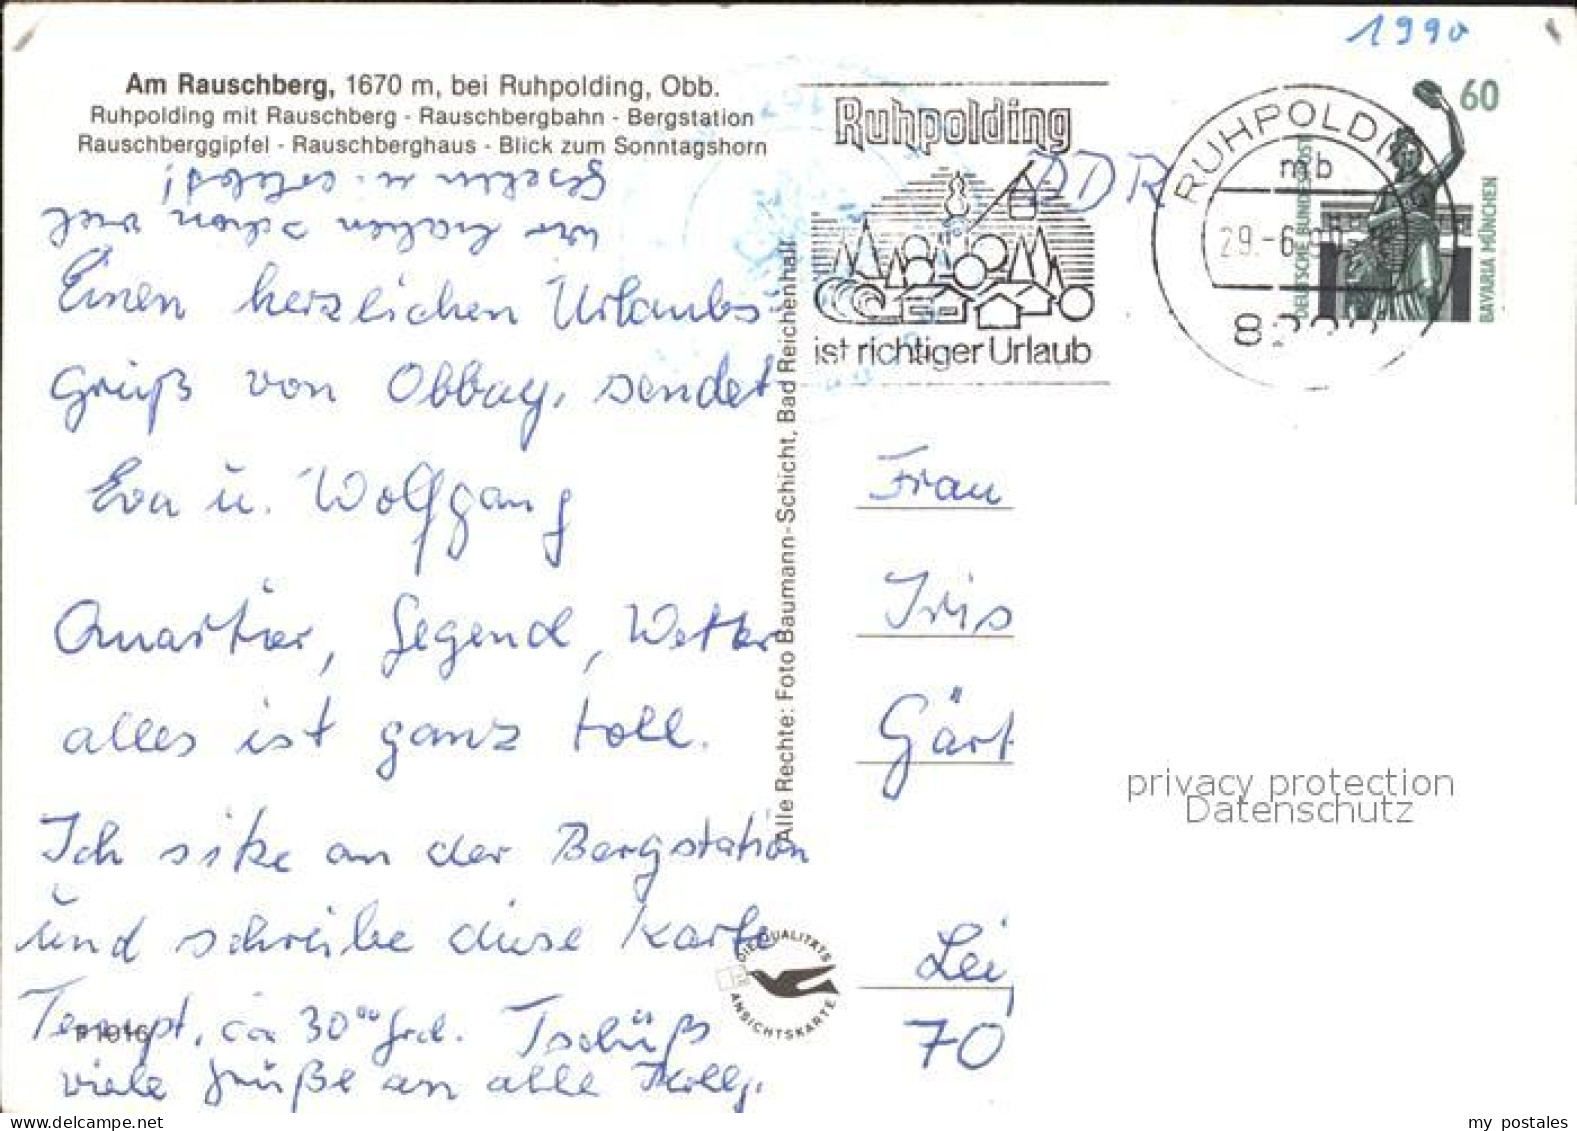 1990
Am Rauschberg, 1670 m, bei Ruhpolding, Obb.
Ruhpolding mit Rauschberg - Rauschbergbahn - Bergstation
Rauschberggipfel - Rauschberghaus - Blick zum Sonntagshorn
Einen herzlichen Urlaubs
gruß von Obbay, sendet
Eva u. Wolfgang
Quartier, Gegend, Wetter
alles ist ganz toll.
Ich sitze an der Bergstation
und schreibe diese Karte
Temp., ca 30°° Grd. Tschüß
viele Grüße an alle Kolleg.
wir haben schon viel
gesehen u. erlebt!
P1016
Alle Rechte: Foto Baumann-Schicht, Bad Reichenhall
DIE QUALITÄTS
ANSICHTSKARTE
Ruhpolding
ist richtiger Urlaub
DDR
RUHPOLDI
mb
29.-6
DEUTSCHE BUNDESPOST
60
BAVARIA MÜNCHEN
Frau
Iris
Gärt
Lei
70
privacy protection
Datenschutz
my postales